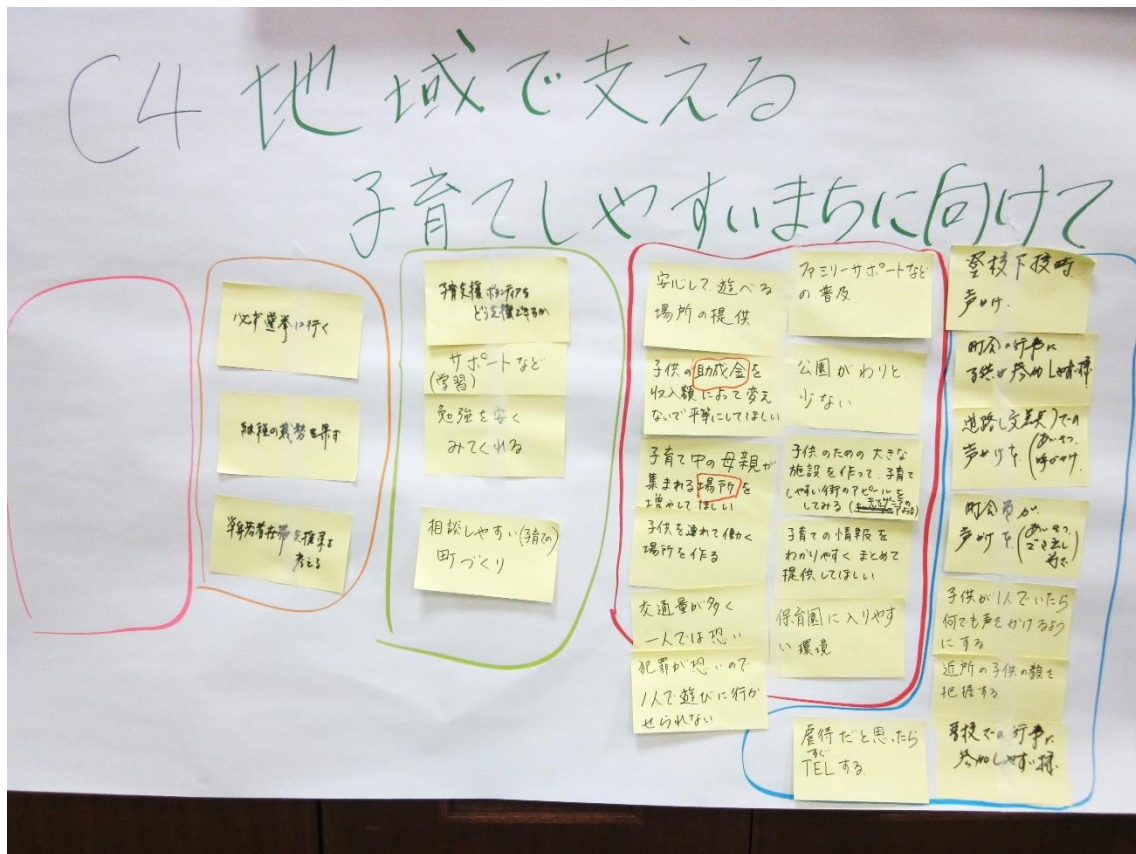 C4 地域で支える
子育てしやすいまちに向けて
必ず選挙に行く
納税の義務を果す
考える
子育支援ボランティアを
どう支援できるか
サポートなど
(学習)
勉強を安く
みてくれる
相談しやすい(子育ての)
町づくり
安心して遊べる
場所の提供
子供の助成金を
収入額によって変え
ないで平等にしてほしい
子育て中の母親が
集まれる場所を
増やしてほしい
子供を連れて働く
場所を作る
交通量が多く
一人では恐い
犯罪が恐いので
1人で遊びに行か
せられない
ファミリーサポートなど
の普及
公園がわりと
少ない
子供のための大きな
施設を作って、子育て
しやすい街のアピールを
してみる
子育ての情報を
わかりやすくまとめて
提供してほしい
保育園に入りやす
い環境
虐待だと思ったら
すぐ
TELする
登校下校時
声かけ.
町会の行事に
子供が参加しやすい様
道路(交差点)での
声かけを(あいさつ.
呼びかけ.
町会等が.
声かけを(あいさつ.
ゴミ出し
子供が1人でいたら
何でも声をかけるよう
にする
近所の子供の顔を
把握する
学校での行事に
参加しやすい様